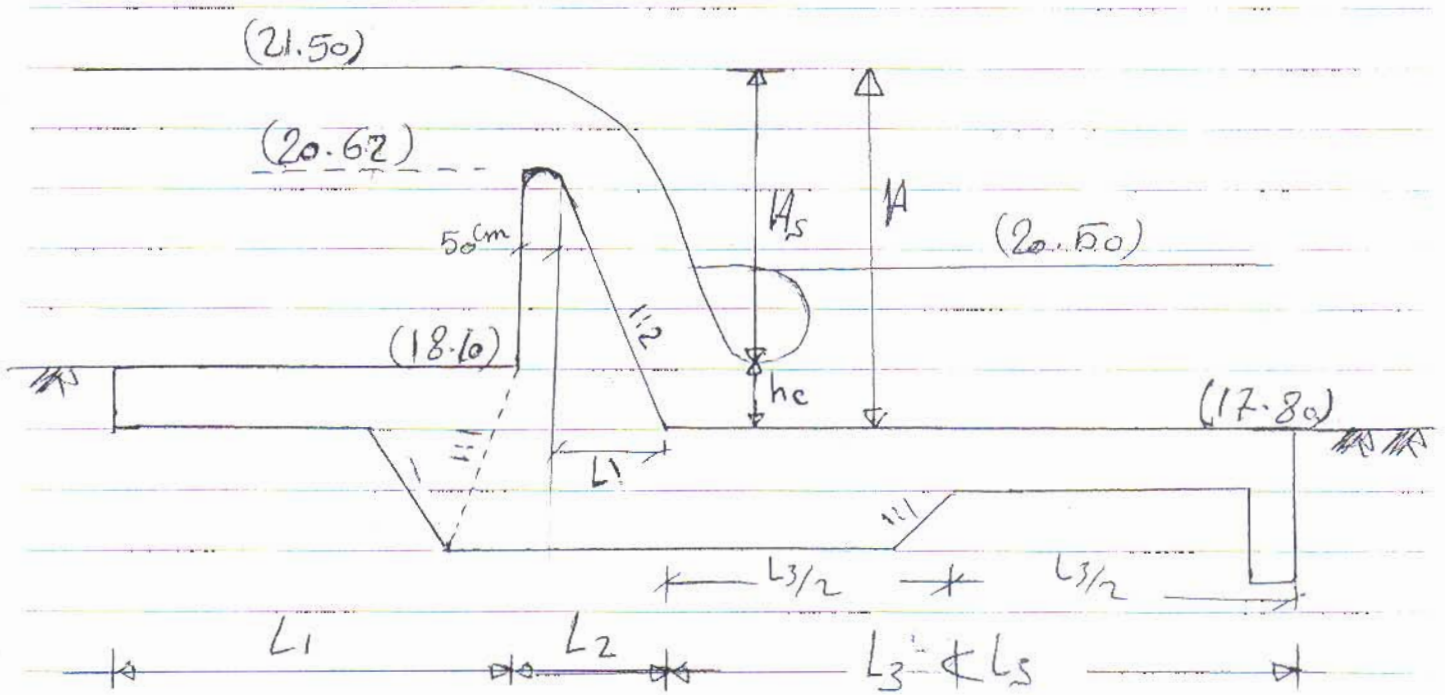 (21.50)
(20.62)
Hs
H
50 cm
(20.50)
1:2
(18.10)
hc
(17.80)
1:1
L1
1:1
L3/2
L3/2
L1
L2
L3 ≮ Ls